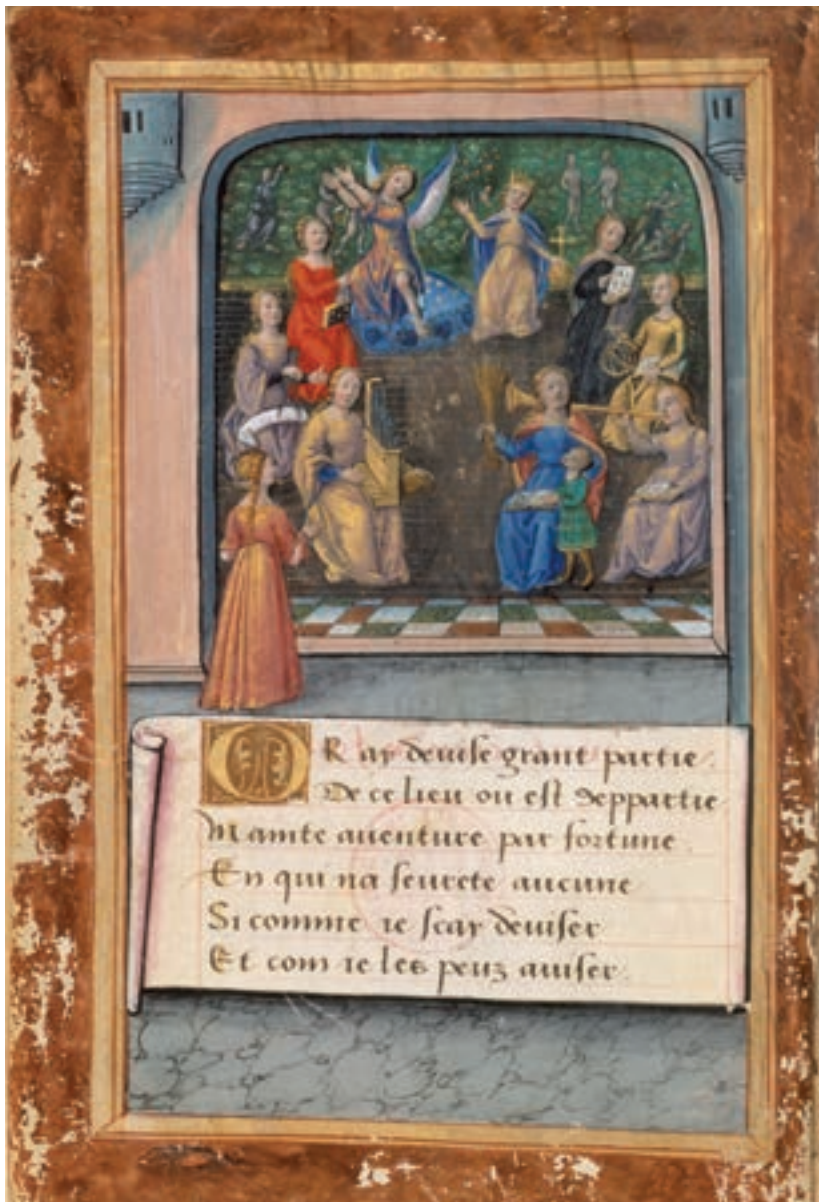 OR ay deuise grant partie
De ce lieu ou est deppartie
Mainte auenture par fortune
En qui na seurete aucune
Si comme ie scay deuiser
Et com ie les peuz auiser